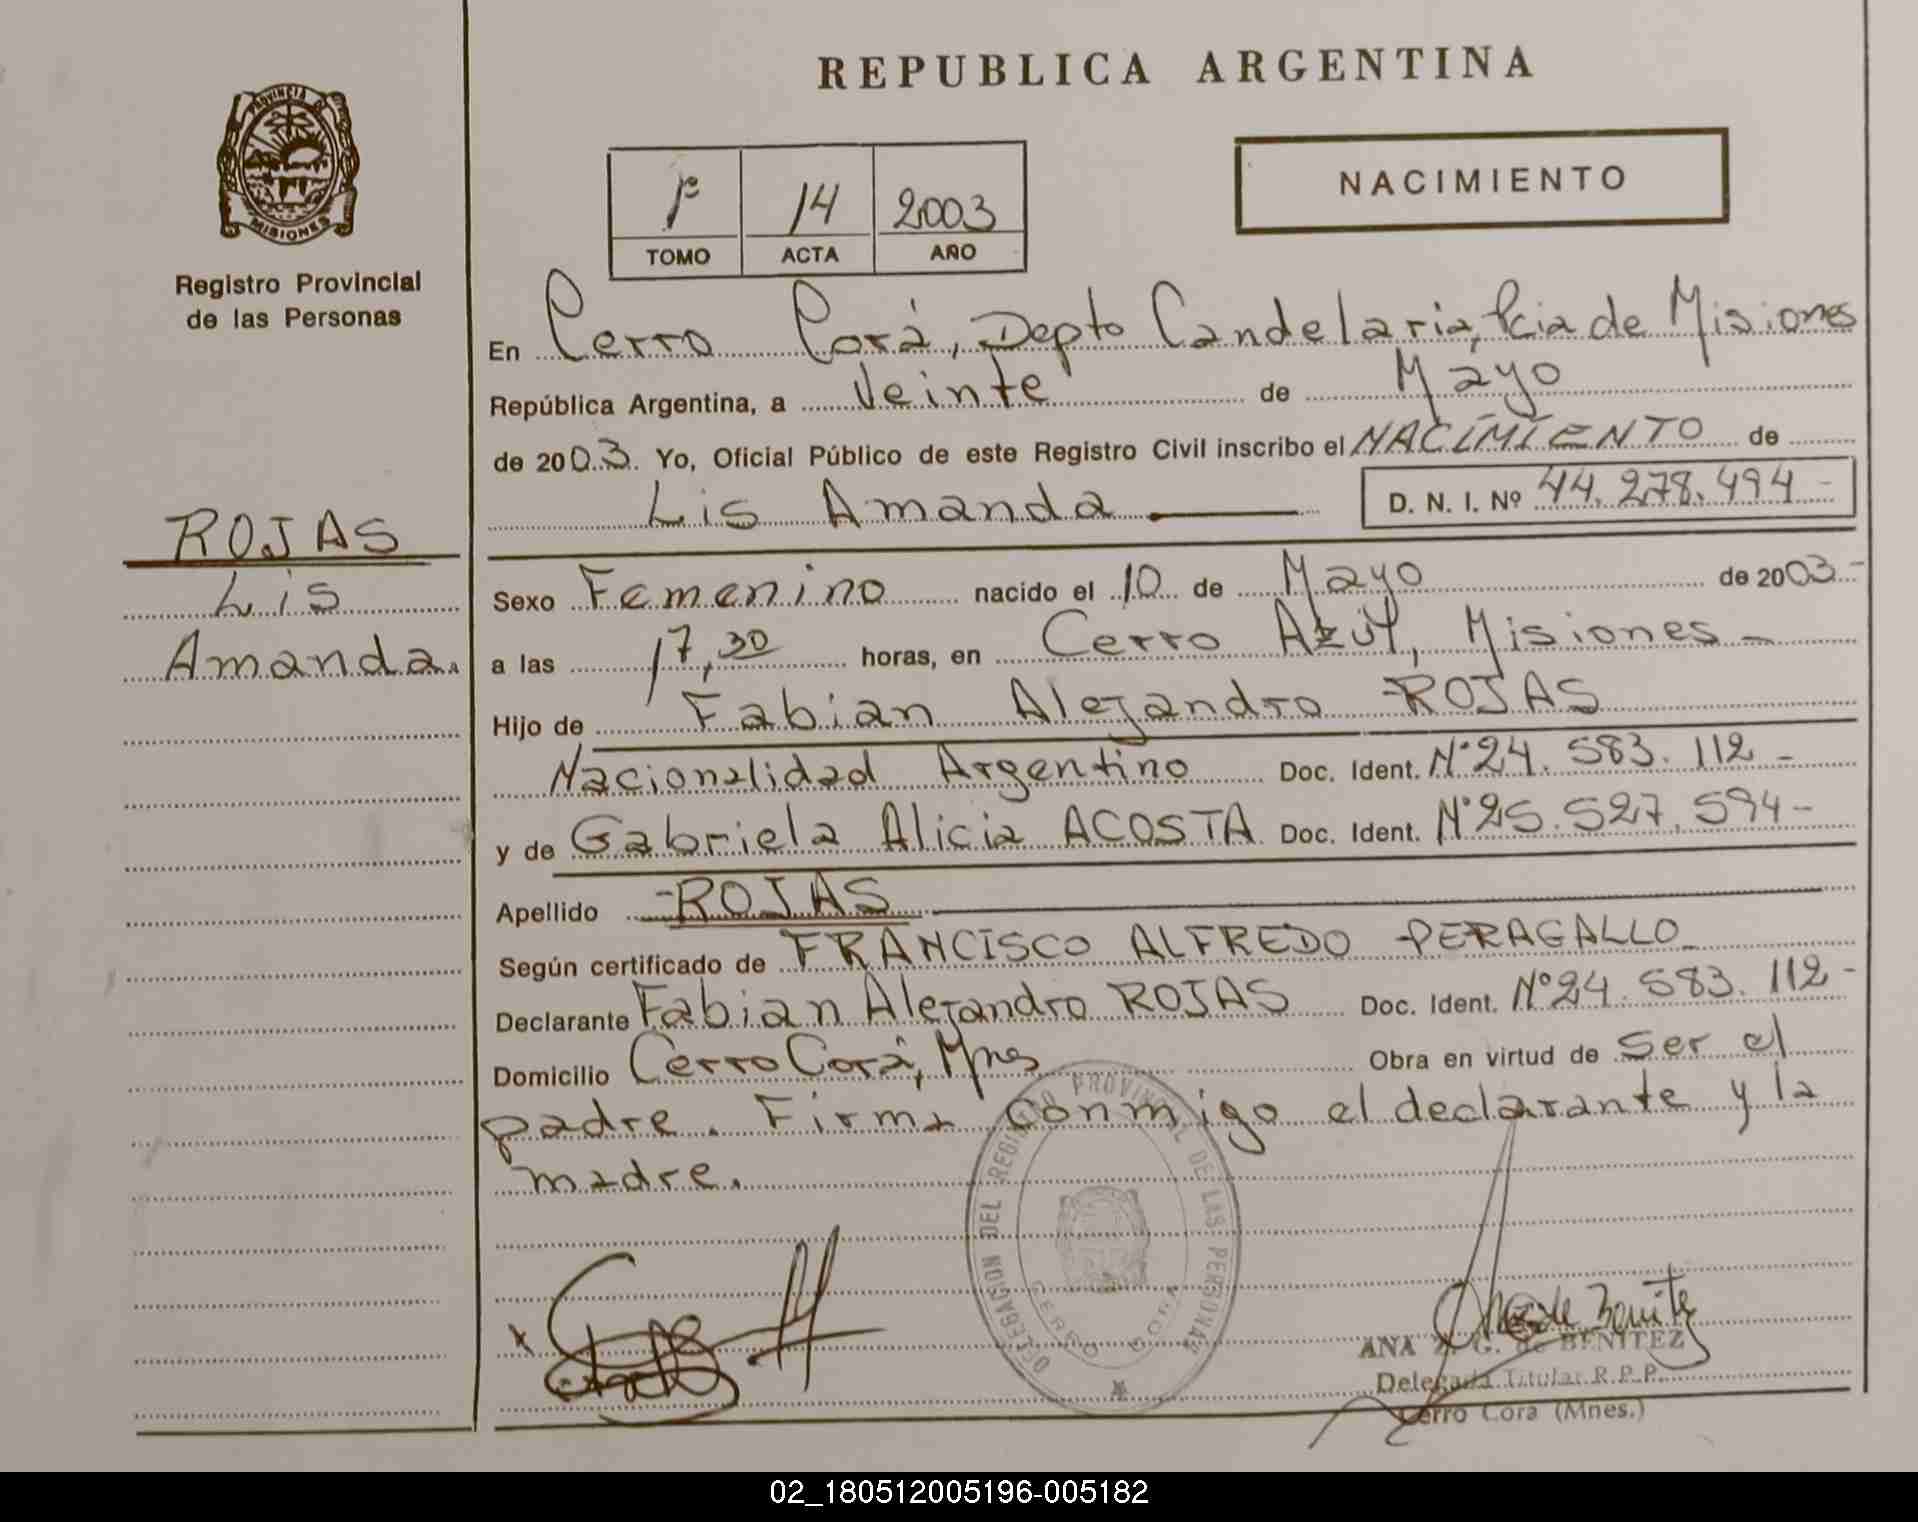 REPUBLICA ARGENTINA
PROVINCIA DE
MISIONES
Registro Provincial
de las Personas
1º 14 2003
TOMO ACTA AÑO
NACIMIENTO
En Cerro Corá, Depto Candelaria, Pcia de Misiones
República Argentina, a Veinte de Mayo
de 2003. Yo, Oficial Público de este Registro Civil inscribo el NACIMIENTO de
Lis Amanda D. N. I. Nº 44.278.494-
ROJAS
Lis
Amanda.
Sexo Femenino nacido el 10 de Mayo de 2003-
a las 17,30 horas, en Cerro Azul, Misiones-
Hijo de Fabian Alejandro ROJAS
Nacionalidad Argentino Doc. Ident. Nº24.583.112-
y de Gabriela Alicia ACOSTA Doc. Ident. Nº25.527.594-
Apellido -ROJAS
Según certificado de FRANCISCO ALFREDO PERAGALLO
Declarante Fabian Alejandro ROJAS Doc. Ident. Nº24.583.112-
Domicilio Cerro Corá, Mnes Obra en virtud de ser el
padre. Firma conmigo el declarante y la
madre.
DELEGACION DEL REGISTRO PROVINCIAL DE LAS PERSONAS
CERRO CORA
ANA Z. G. de BENITEZ
Delegada Titular R.P.P.
Cerro Cora (Mnes.)
02_180512005196-005182